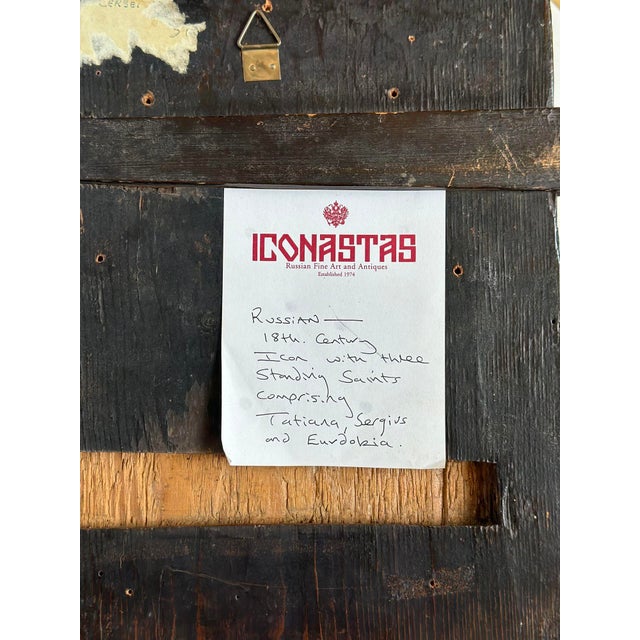 ICONASTAS
Russian Fine Art and Antiques
Established 1974
Russian —
18th. Century
Icon with three
Standing Saints
comprising
Tatiana, Sergius
and Eurdokia.